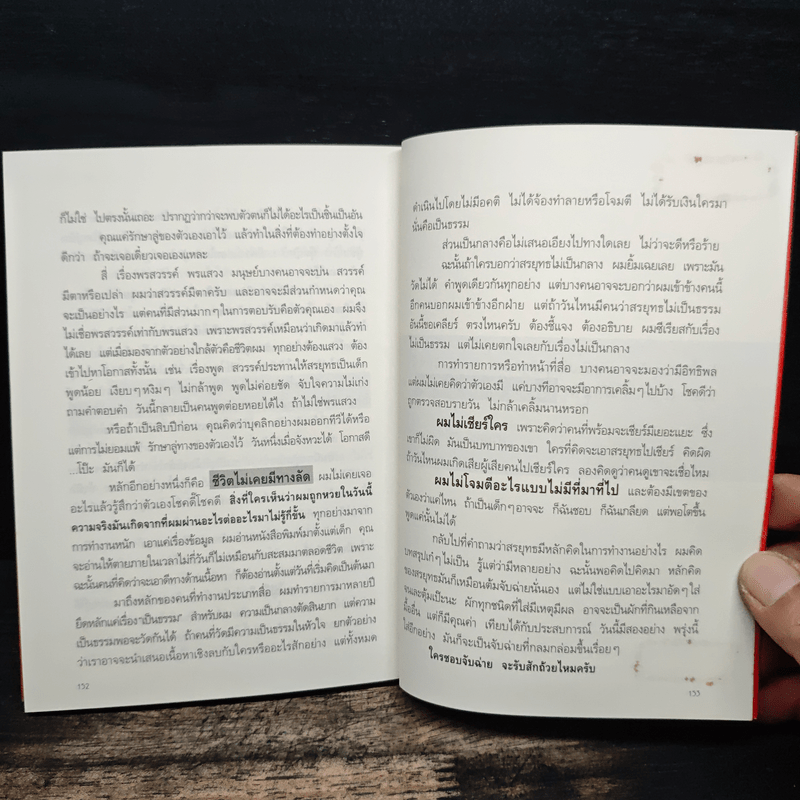 ก็ไม่ใช่ ไปตรงนั้นเถอะ ปรากฏว่ากว่าจะพบตัวตนก็ไม่ได้อะไรเป็นชิ้นเป็นอัน
คุณแค่รักษาลู่ของตัวเองเอาไว้ แล้วทำในสิ่งที่ต้องทำอย่างตั้งใจ
ดีกว่า ถ้าจะเจอเดี๋ยวเจอเองแหละ
สี่ เรื่องพรสวรรค์ พรแสวง มนุษย์บางคนอาจจะบ่น สวรรค์
มีตาหรือเปล่า ผมว่าสวรรค์มีตาครับ และอาจจะมีส่วนกำหนดว่าคุณ
จะเป็นอย่างไร แต่คนที่มีส่วนมากๆ ในการตอบรับคือตัวคุณเอง ผมจึง
ไม่เชื่อพรสวรรค์เท่ากับพรแสวง เพราะพรสวรรค์เหมือนว่าเกิดมาแล้วทำ
ได้เลย แต่เมื่อมองจากตัวอย่างใกล้ตัวคือชีวิตผม ทุกอย่างต้องแสวง ต้อง
เข้าไปหาโอกาสทั้งนั้น เช่น เรื่องพูด สวรรค์ประทานให้สรยุทธเป็นเด็ก
พูดน้อย เงียบๆ หงิมๆ ไม่กล้าพูด พูดไม่ค่อยชัด จับใจความไม่เก่ง
ถามคำตอบคำ วันนี้กลายเป็นคนพูดต่อยหอยได้ไง ถ้าไม่ใช่พรแสวง
หรือถ้าเป็นสิบปีก่อน คุณคิดว่าบุคลิกอย่างผมออกทีวีได้หรือ
แต่การไม่ยอมแพ้ รักษาลู่ทางของตัวเองไว้ วันหนึ่งเมื่อจังหวะได้ โอกาสดี
...โป๊ะ มันก็ได้
หลักอีกอย่างหนึ่งก็คือ ชีวิตไม่เคยมีทางลัด ผมไม่เคยเจอ
อะไรแล้วรู้สึกว่าตัวเองโชคดี๊โชคดี สิ่งที่ใครเห็นว่าผมถูกหวยในวันนี้
ความจริงมันเกิดจากที่ผมผ่านอะไรต่ออะไรมาไม่รู้กี่ขั้น ทุกอย่างมาจาก
การทำงานหนัก เอาแค่เรื่องข้อมูล ผมอ่านหนังสือพิมพ์มาตั้งแต่เด็ก คุณ
จะอ่านให้ตายภายในเวลาไม่กี่วันก็ไม่เหมือนกับสะสมมาตลอดชีวิต เพราะ
ฉะนั้นคนที่คิดว่าจะเอาดีทางด้านเนื้อหา ก็ต้องอ่านตั้งแต่วันที่เริ่มคิดเป็นต้นมา
มาถึงหลักของคนที่ทำงานประเภทสื่อ ผมทำรายการมาหลายปี
ยึดหลักแค่เรื่อง "เป็นธรรม" สำหรับผม ความเป็นกลางตัดสินยาก แต่ความ
เป็นธรรมพอจะวัดกันได้ ถ้าคนที่วัดมีความเป็นธรรมในหัวใจ ยกตัวอย่าง
ว่าเราอาจจะนำเสนอเนื้อหาเชิงลบกับใครหรืออะไรสักอย่าง แต่ทั้งหมด
152
ดำเนินไปโดยไม่มีอคติ ไม่ได้จ้องทำลายหรือโจมตี ไม่ได้รับเงินใครมา
นั่นคือเป็นธรรม
ส่วนเป็นกลางคือไม่เสนอเอียงไปทางใดเลย ไม่ว่าจะดีหรือร้าย
ฉะนั้นถ้าใครบอกว่าสรยุทธไม่เป็นกลาง ผมยิ้มเฉยเลย เพราะมัน
วัดไม่ได้ คำพูดเดียวกันทุกอย่าง แต่บางคนอาจจะบอกว่าผมเข้าข้างคนนี้
อีกคนบอกผมเข้าข้างอีกฝ่าย แต่ถ้าวันไหนมีคนว่าสรยุทธไม่เป็นธรรม
อันนี้ขอเคลียร์ ตรงไหนครับ ต้องชี้แจง ต้องอธิบาย ผมซีเรียสกับเรื่อง
ไม่เป็นธรรม แต่ไม่เคยตกใจเลยกับเรื่องไม่เป็นกลาง
การทำรายการหรือทำหน้าที่สื่อ บางคนอาจจะมองว่ามีอิทธิพล
แต่ผมไม่เคยคิดว่าตัวเองมี แค่บางทีอาจจะมีอาการเคลิ้มๆ ไปบ้าง โชคดีว่า
ถูกตรวจสอบรายวัน ไม่กล้าเคลิ้มนานหรอก
ผมไม่เชียร์ใคร เพราะคิดว่าคนที่พร้อมจะเชียร์มีเยอะแยะ ซึ่ง
เขาก็ไม่ผิด มันเป็นบทบาทของเขา ใครที่คิดจะเอาสรยุทธไปเชียร์ คิดผิด
ถ้าวันไหนผมเกิดเสียผู้เสียคนไปเชียร์ใคร ลองคิดดูว่าคนดูเขาจะเชื่อไหม
ผมไม่โจมตีอะไรแบบไม่มีที่มาที่ไป และต้องมีเขตของ
ตัวเองว่าแค่ไหน ถ้าเป็นเด็กๆ อาจจะ ก็ฉันชอบ ก็ฉันเกลียด แต่พอโตขึ้น
พูดแค่นั้นไม่ได้
กลับไปที่คำถามว่าสรยุทธมีหลักคิดในการทำงานอย่างไร ผมคิด
บทสรุปเก๋ๆ ไม่เป็น รู้แต่ว่ามีหลายอย่าง ฉะนั้นพอคิดไปคิดมา หลักคิด
ของสรยุทธมันก็เหมือนต้มจับฉ่ายนั่นเอง แต่ไม่ใช่แบบเอาอะไรมาอัดๆ ใส่
จนละตุ้มเป๊ะนะ ผักทุกชนิดที่ใส่มีเหตุมีผล อาจจะเป็นผักที่กินเหลือจาก
มื้ออื่น แต่ก็มีคุณค่า เทียบได้กับประสบการณ์ วันนี้มีสองอย่าง พรุ่งนี้
ใส่อีกอย่าง มันก็จะเป็นจับฉ่ายที่กลมกล่อมขึ้นเรื่อยๆ
ใครชอบจับฉ่าย จะรับสักถ้วยไหมครับ
153